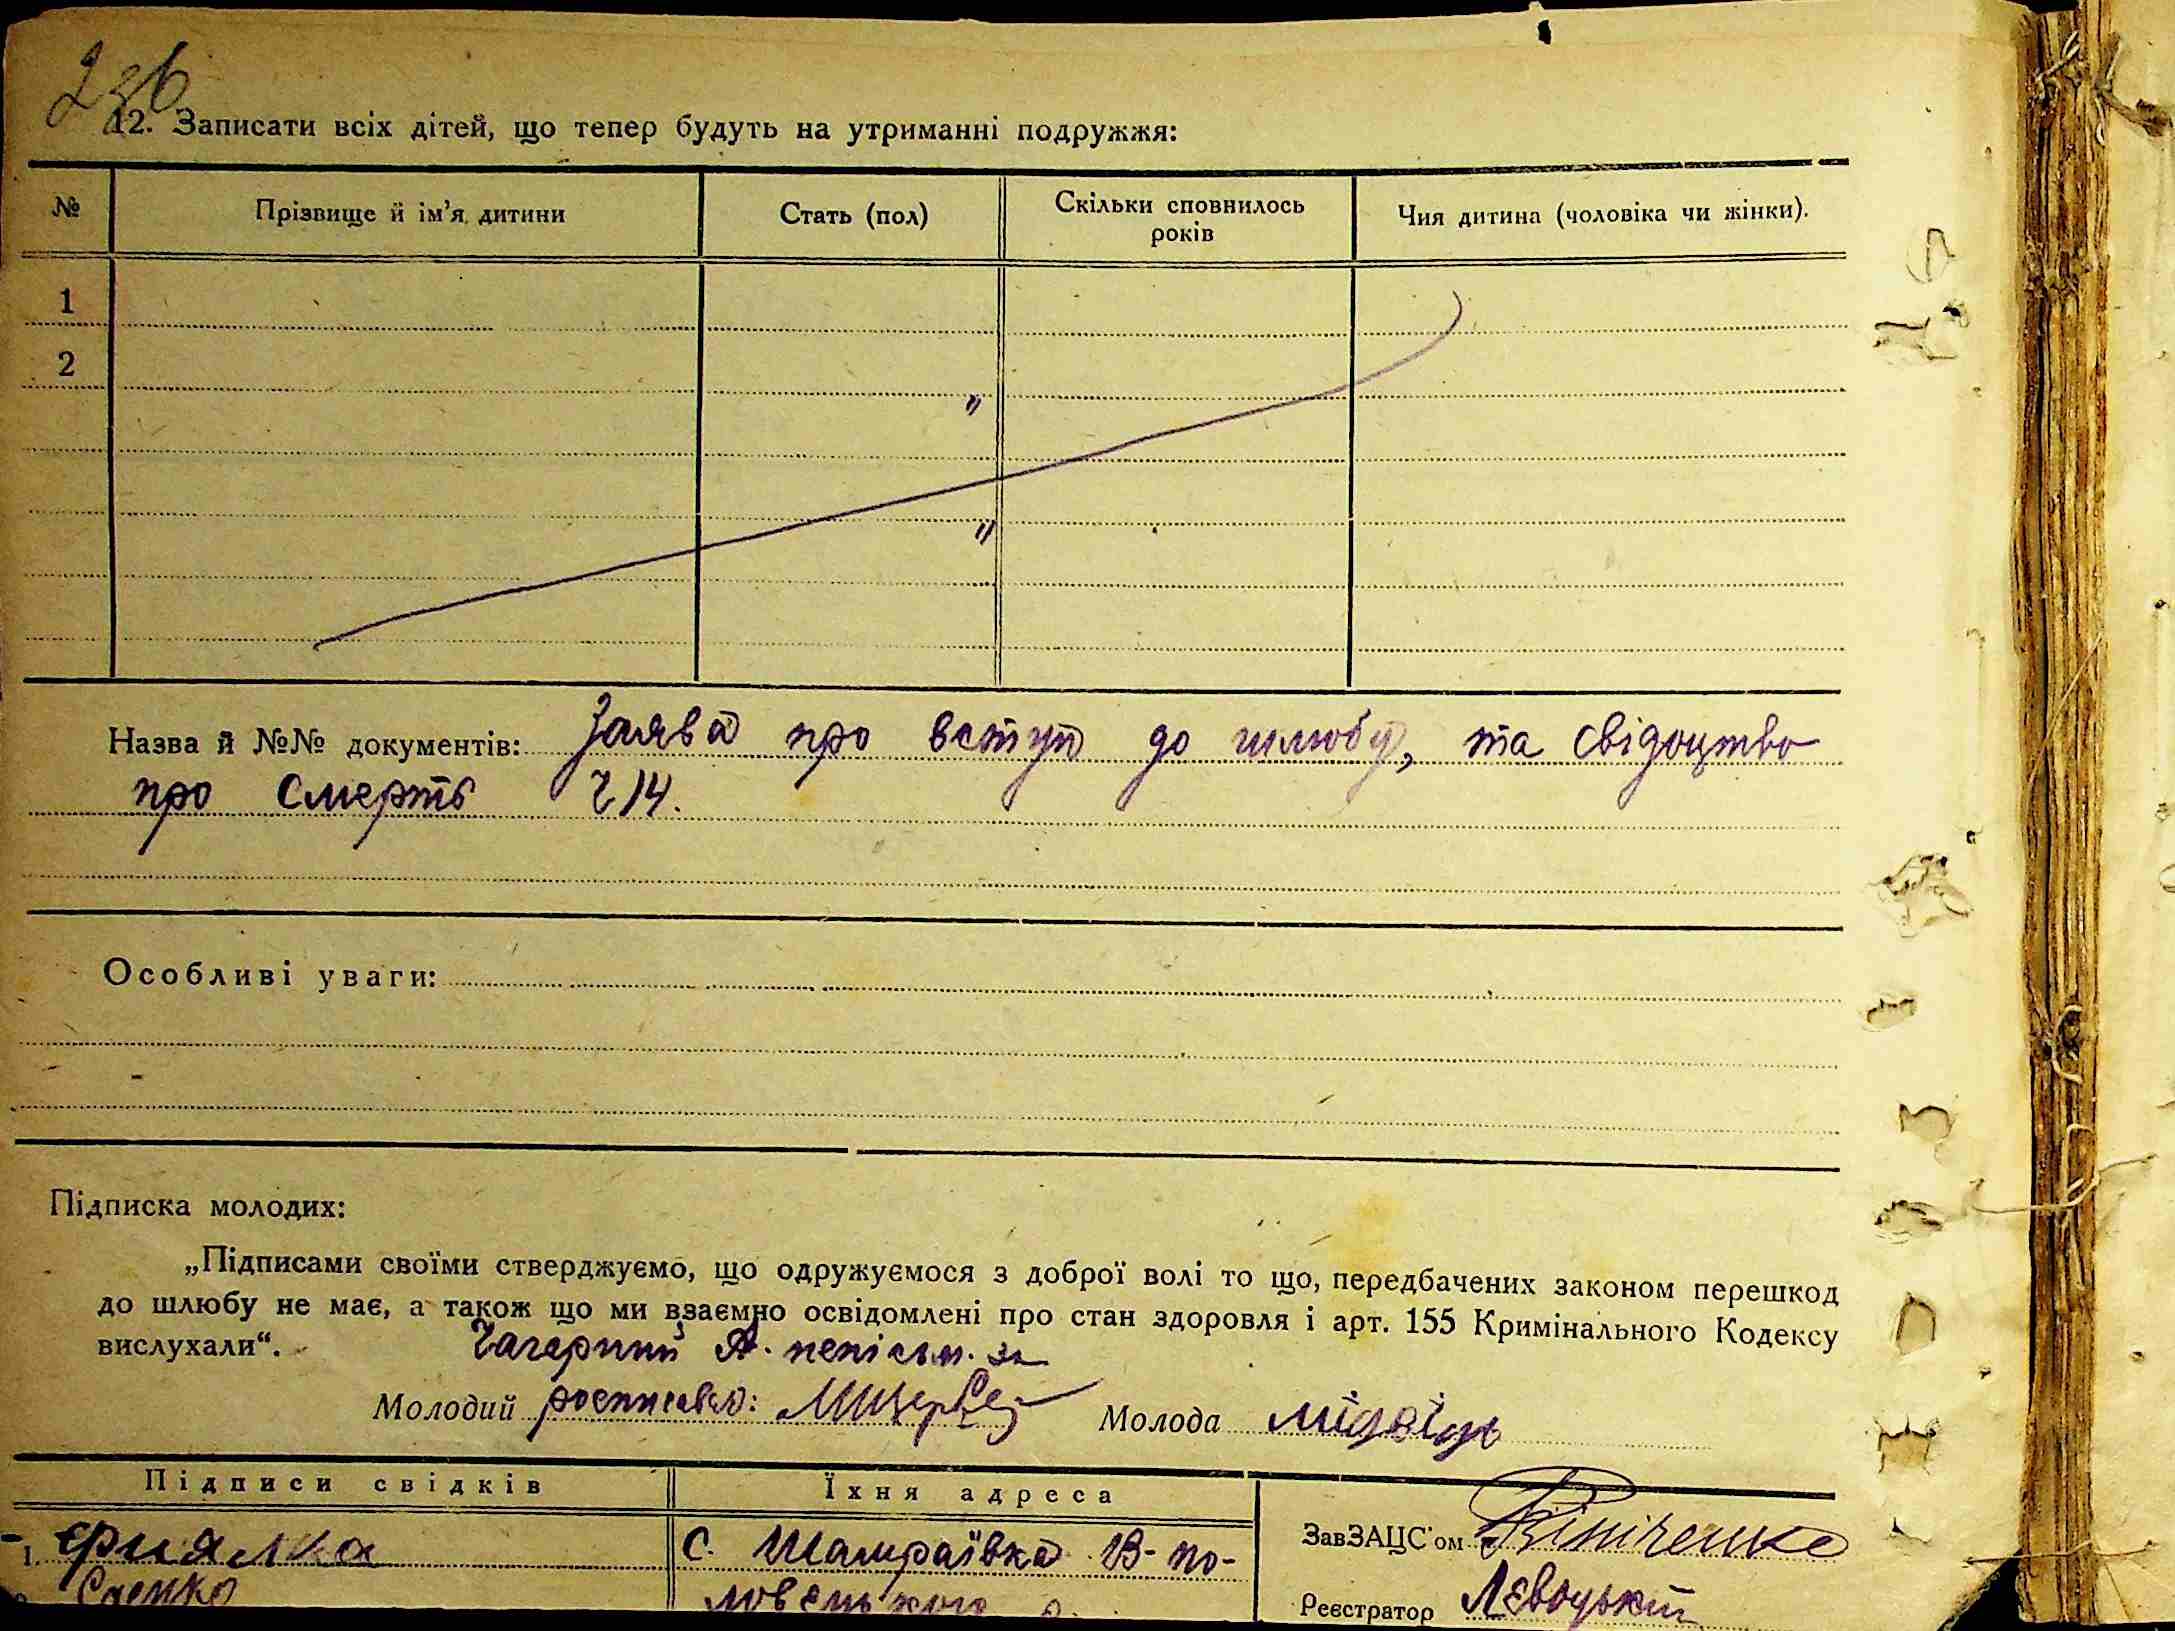 236
12. Записати всіх дітей, що тепер будуть на утриманні подружжя:
№ Прізвище й ім'я дитини Стать (пол) Скільки сповнилось років Чия дитина (чоловіка чи жінки).
1
2
"
"
Назва й №№ документів: Заява про вступ до шлюбу, та свідоцтво
про смерть ч 14.
Особливі уваги:
Підписка молодих:
„Підписами своїми стверджуємо, що одружуємося з доброї волі то що, передбачених законом перешкод
до шлюбу не має, а також що ми взаємно освідомлені про стан здоровля і арт. 155 Кримінального Кодексу
вислухали“.
А. неписьм. за
Молодий росписався: Молода мідвідь
Підписи свідків Їхня адреса
1. с. Шамраївка В-по-
Саєнко ловецького р.
ЗавЗАЦС'ом Вініченко
Реєстратор Лєвоцький